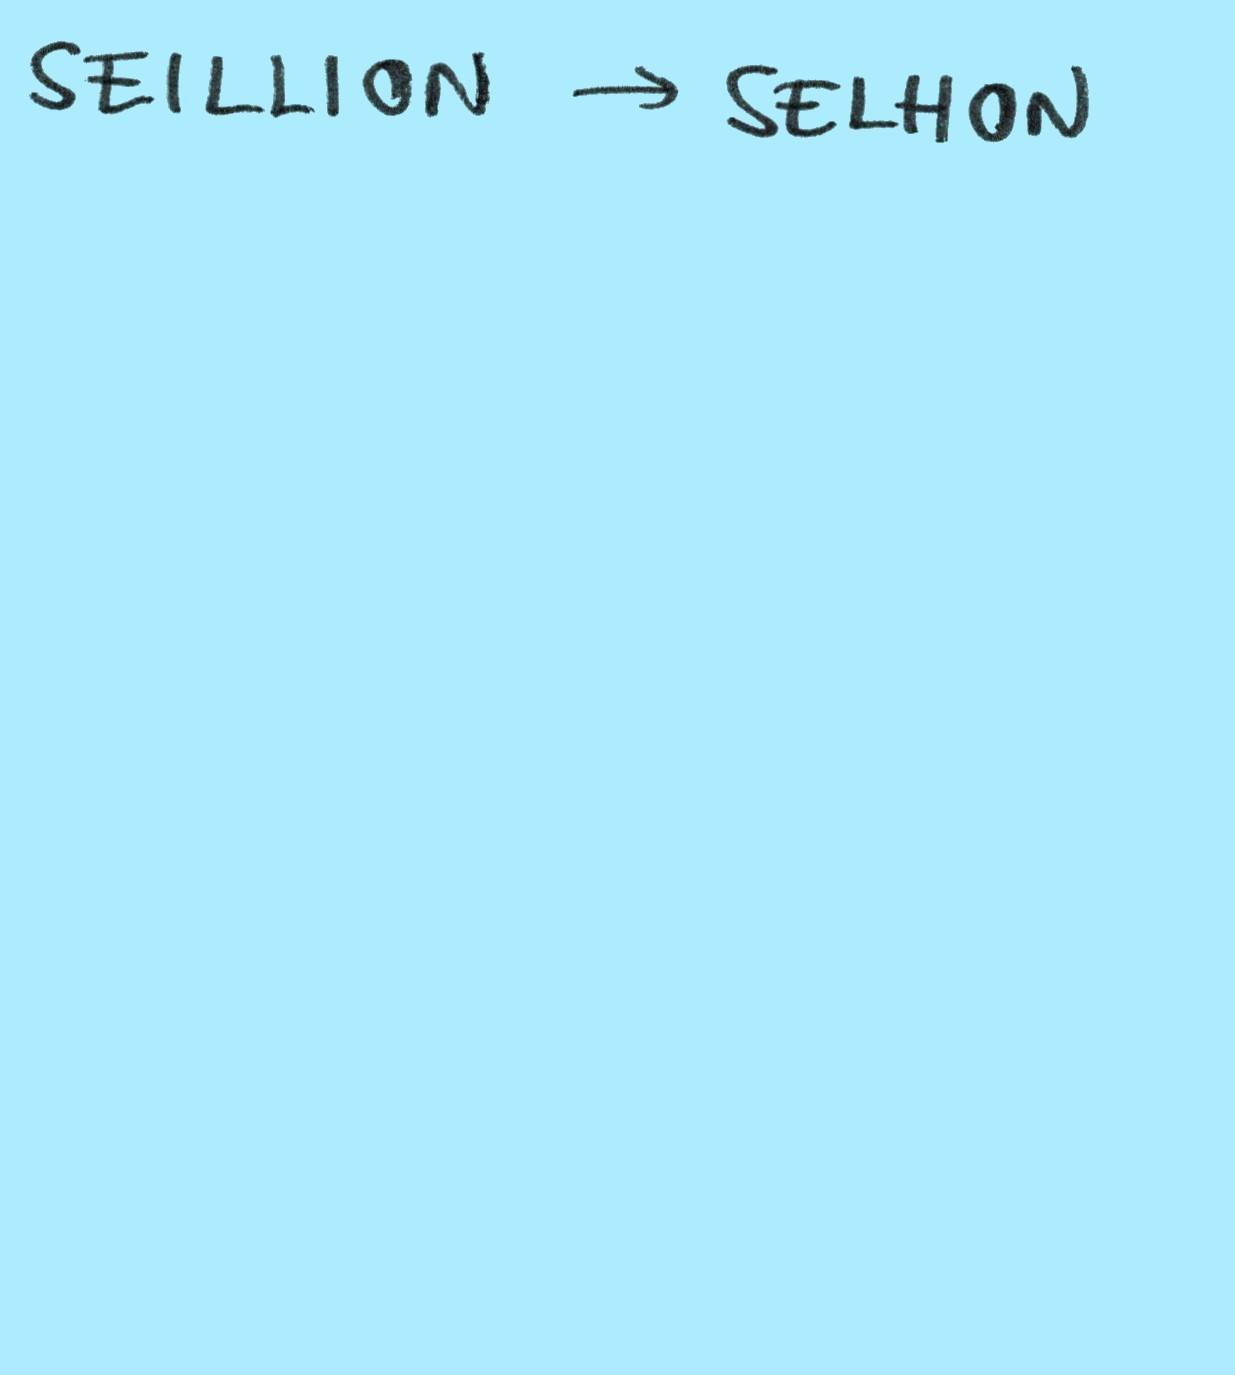 SEILLION → SELHON